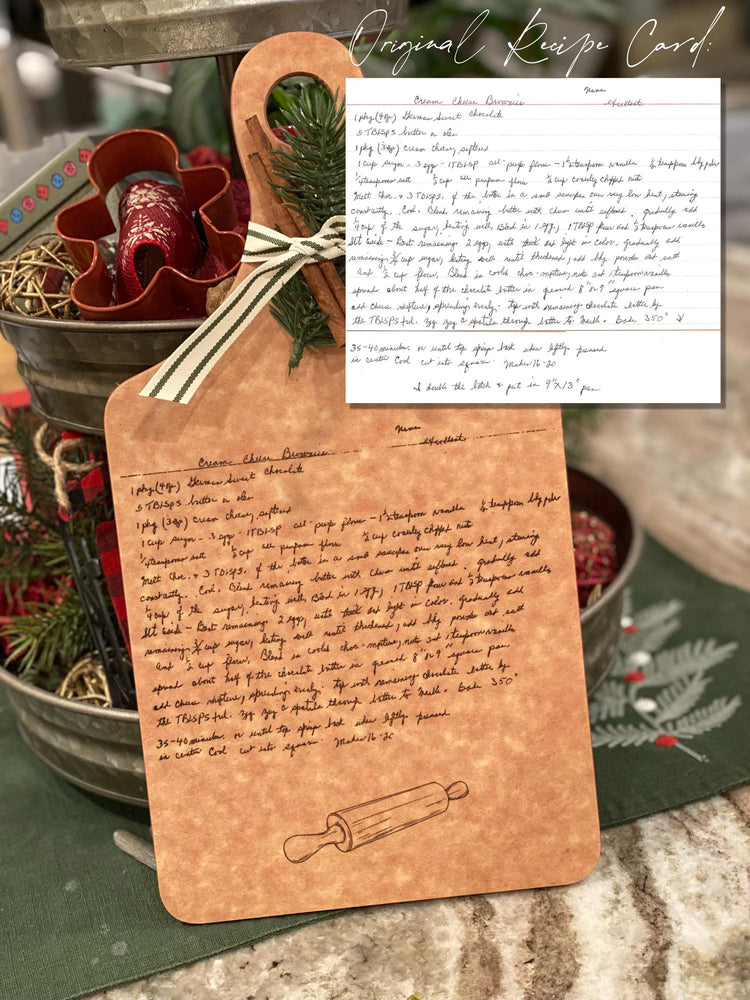 Original Recipe Card:
Nana
Cream Cheese Brownies Excellent
1 pkg (4 oz) German Sweet Chocolate
5 TBLSPS butter or oleo
1 pkg (3 oz) cream cheese, softened
1 cup sugar - 3 eggs - 1 TBLSP all-purp flour - 1 1/2 teaspoon vanilla 1/2 teaspoon bkg pder
1/4 teaspoon salt 1/2 cup all purpose flour 1/2 cup coarsely chopped nuts
Melt choc. & 3 TBLSPS. of the butter in a small saucepan over very low heat, stirring
constantly. Cool. Blend remaining butter with cheese until softened. Gradually add
1/4 cup of the sugar, beating well, Blend in 1 egg, 1 TBLSP flour and 1/2 teaspoon vanilla
Set aside - Beat remaining 2 eggs, until thick and light in color. Gradually add
remaining 3/4 cup sugar, beating until thickened, add bkg. powder and salt
and 1/2 cup flour, Blend in cooled choc - mixture, nuts and 1 teaspoon vanilla
spread about half of the chocolate batter in greased 8" or 9" square pan
add cheese mixture, spreading evenly. Top with remaining chocolate batter by
the TBLSPS ful. Zig zag a spatula through batter to marble. Bake 350°
35-40 minutes. or until top springs back when lightly pressed
in center Cool cut into squares. Makes 16-20
I double the batch & put in 9"X13" pan
Nana
Cream Cheese Brownies Excellent
1 pkg (4 oz) German Sweet Chocolate
5 TBLSPS butter or oleo
1 pkg (3 oz) cream cheese, softened
1 cup sugar - 3 eggs - 1 TBLSP all-purp flour - 1 1/2 teaspoon vanilla 1/2 teaspoon bkg pder
1/4 teaspoon salt 1/2 cup all purpose flour 1/2 cup coarsely chopped nuts
Melt choc. & 3 TBLSPS. of the butter in a small saucepan over very low heat, stirring
constantly. Cool. Blend remaining butter with cheese until softened. Gradually add
1/4 cup of the sugar, beating well, Blend in 1 egg, 1 TBLSP flour and 1/2 teaspoon vanilla
Set aside - Beat remaining 2 eggs, until thick and light in color. Gradually add
remaining 3/4 cup sugar, beating until thickened, add bkg. powder and salt
and 1/2 cup flour, Blend in cooled choc - mixture, nuts and 1 teaspoon vanilla
spread about half of the chocolate batter in greased 8" or 9" square pan
add cheese mixture, spreading evenly. Top with remaining chocolate batter by
the TBLSPS ful. Zig zag a spatula through batter to marble. Bake 350°
35-40 minutes. or until top springs back when lightly pressed
in center Cool cut into squares. Makes 16-20